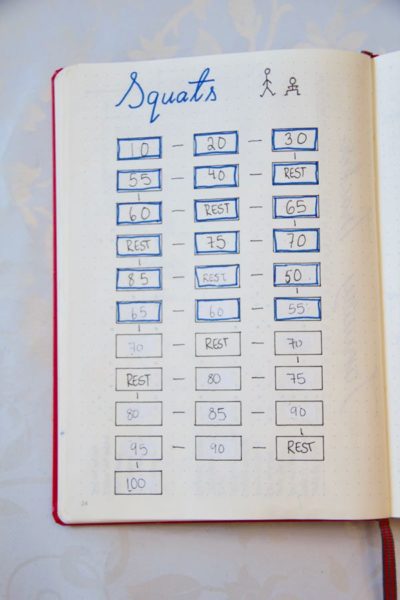 Squats
10 - 20 - 30
55 - 40 - REST
60 - REST - 65
REST - 75 - 70
85 - REST - 50
65 - 60 - 55
70 - REST - 70
REST - 80 - 75
80 - 85 - 90
95 - 90 - REST
100